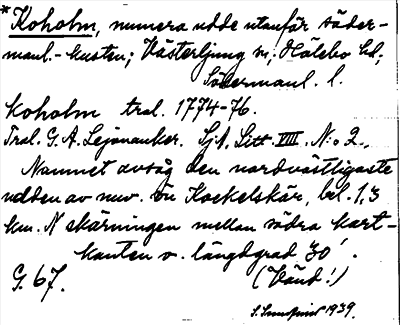 * Koholm, numera udde utanför söder-
manl.-kusten; Västerljung sn; Hölebo hd;
Södermanl. l.
Koholm tral. 1774-76.
Tral. G. A. Lejonanker. Sjk. Litt. VIII. N:o 2.
Namnet avsåg den nordvästligaste
udden av nuv. ön Kockelskär, bel. 1,3
km. N skärningen mellan södra kart-
kanten o. längdgrad 30'.
G. 67. (Vänd!)
S. Lundqvist 1939.